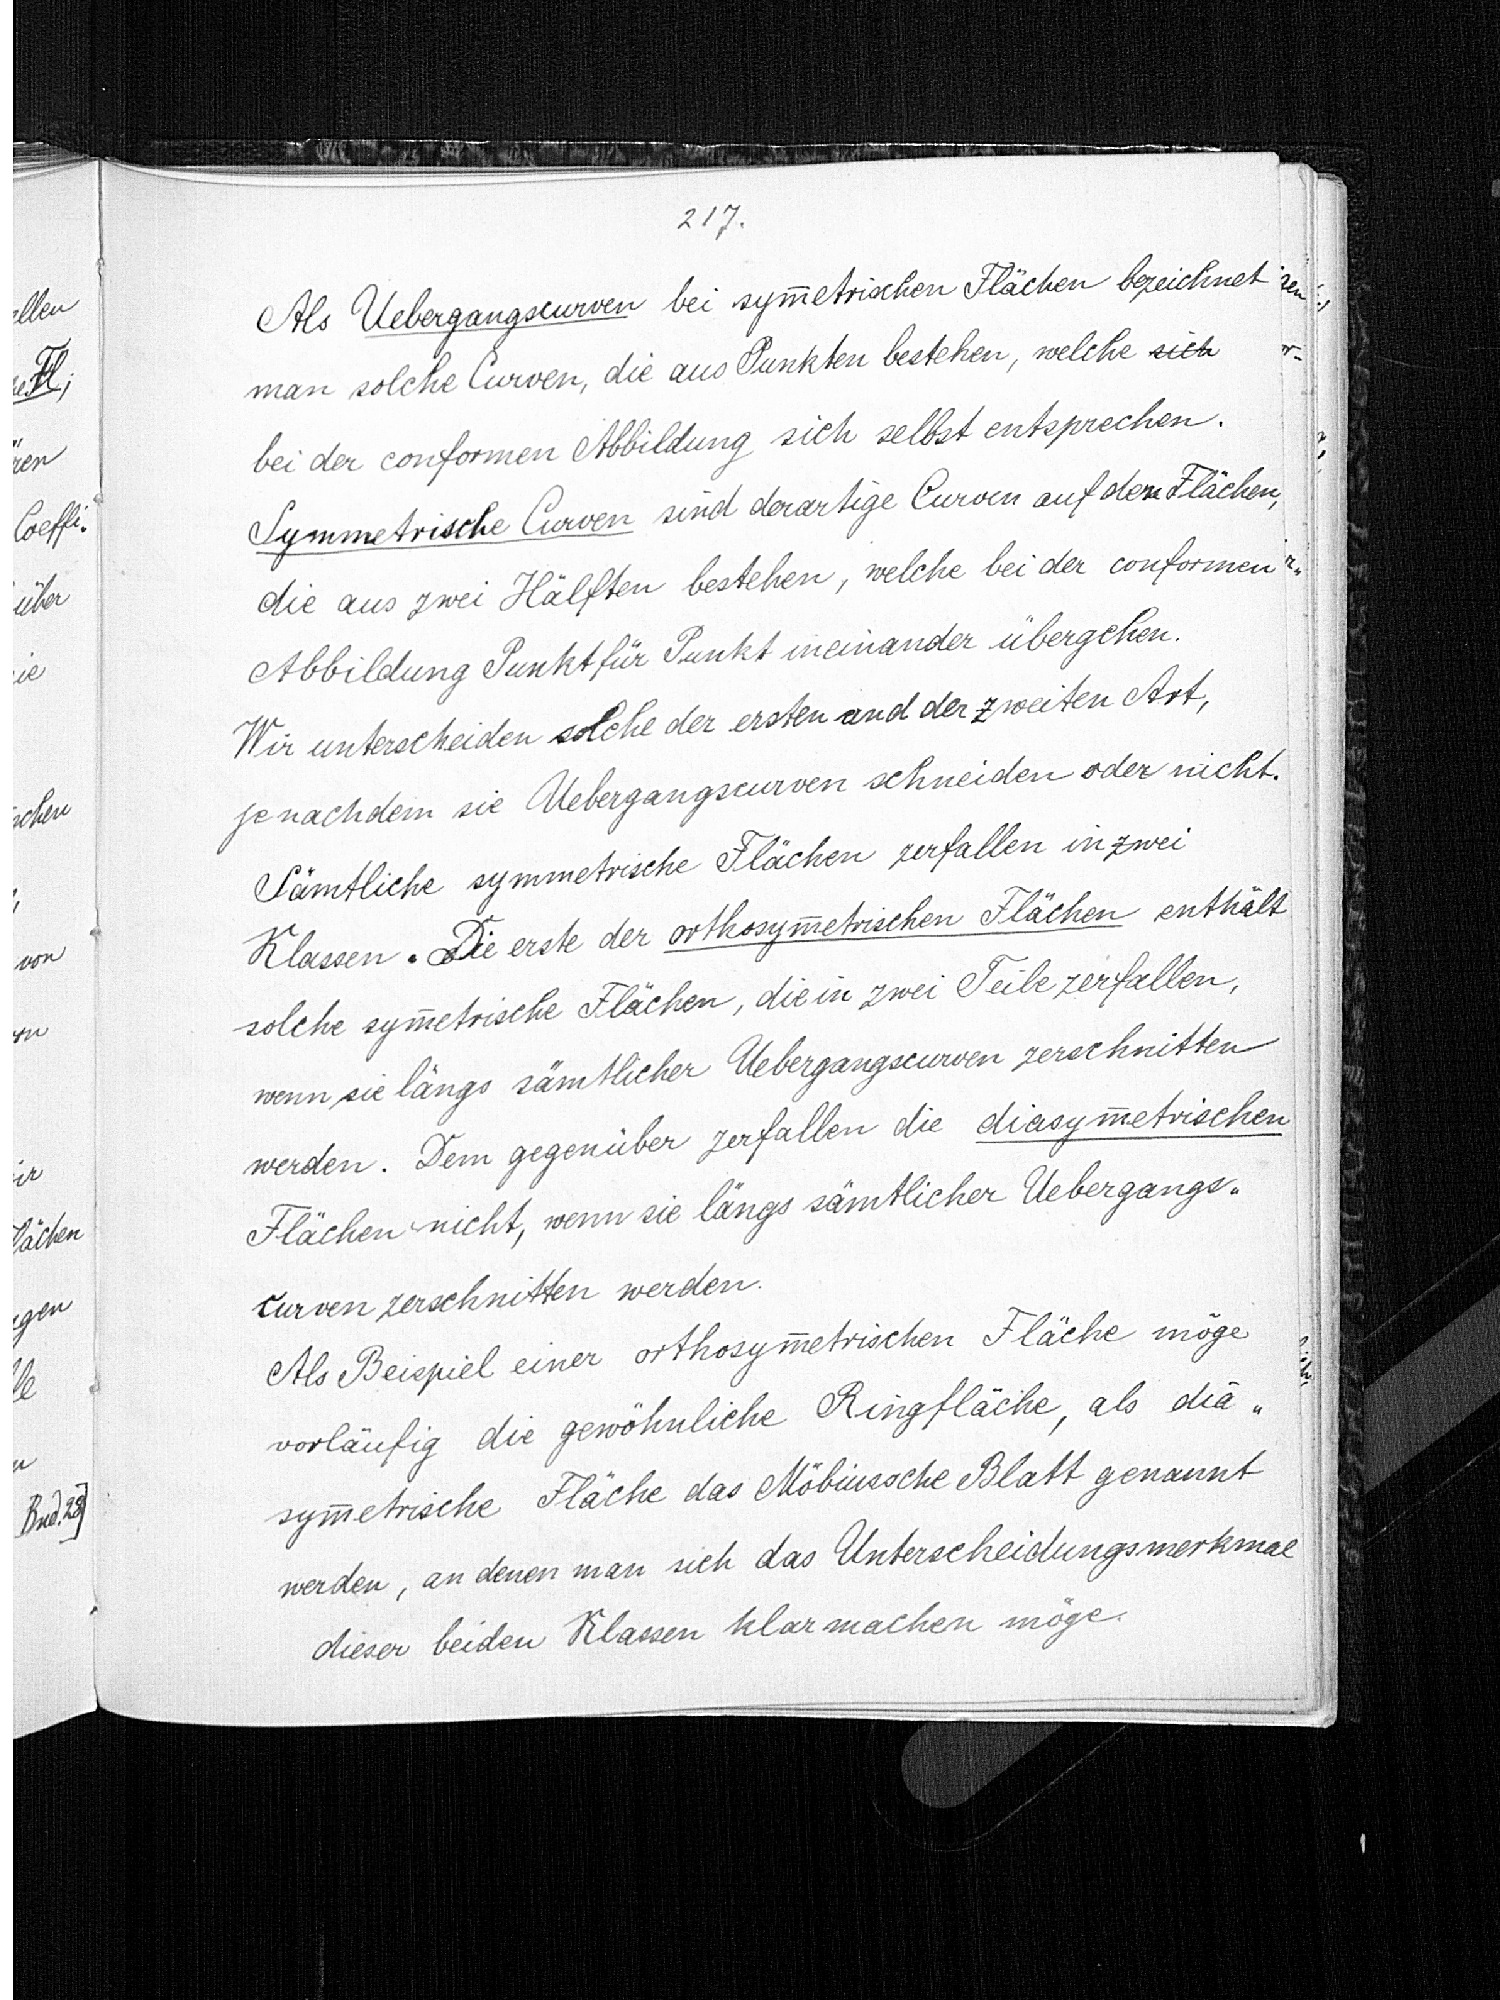 217.
Als Uebergangscurven bei sym̅etrischen Flächen bezeichnet
man solche Curven, die aus Punkten bestehen, welche sich
bei der conformen Abbildung sich selbst entsprechen.
Symmetrische Curven sind derartige Curven auf den Flächen,
die aus zwei Hälften bestehen, welche bei der conformen
Abbildung Punkt für Punkt ineinander übergehen.
Wir unterscheiden solche der ersten und der zweiten Art,
jenachdem sie Uebergangscurven schneiden oder nicht.
Sämtliche symmetrische Flächen zerfallen in zwei
Klassen. Die erste der orthosym̅etrischen Flächen enthält
solche sym̅etrische Flächen, die in zwei Teile zerfallen,
wenn sie längs sämtlicher Uebergangscurven zerschnitten
werden. Dem gegenüber zerfallen die diasym̅etrischen
Flächen nicht, wenn sie längs sämtlicher Uebergangs„
curven zerschnitten werden.
Als Beispiel einer orthosym̅etrischen Fläche möge
vorläufig die gewöhnliche Ringfläche, als dia„
sym̅etrische Fläche das Möbiussche Blatt genannt
werden, an denen man sich das Unterscheidungsmerkmal
dieser beiden Klassen klar machen möge.
ellen
Fl;
ren
Coeffi„
über
ie
schen
von
ir
lächen
gen
le
Bnd. 28]